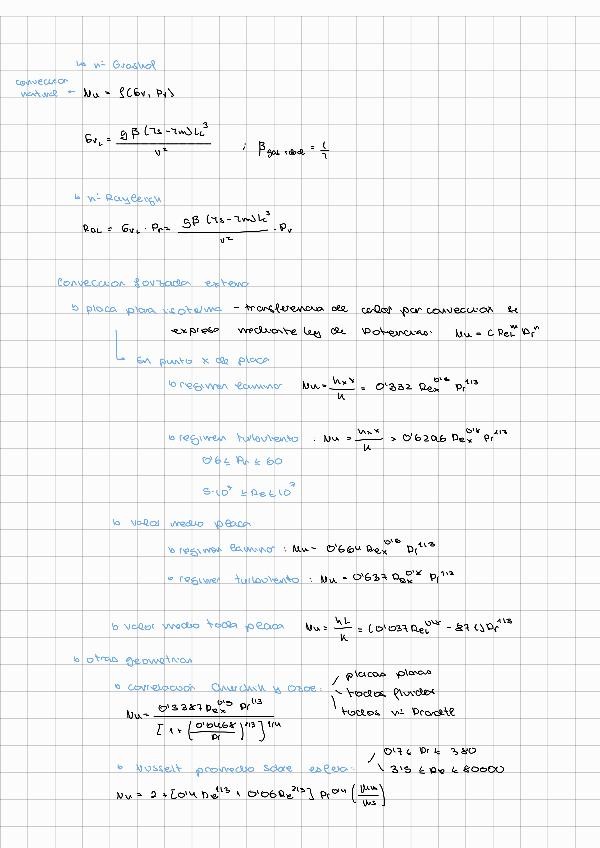 ↳ nº Grashof
convección
natural ← Nu = f(Gr, Pr)
Gr_L = gβ(Ts-T∞)Lc³ / ν² ; β gas ideal = 1/T
↳ nº Rayleigh
Ra_L = Gr_L · Pr = gβ(Ts-T∞)Lc³ / ν² · Pr
Convección forzada externa
↳ placa plana isoterma - transferencia de calor por convección se
expresa mediante ley de potencias: Nu = C Re_L^m Pr^n
↳ En punto x de placa
↳ regimen laminar Nu = h_x x / k = 0'332 Re_x^0'5 Pr^1/3
↳ regimen turbulento : Nu = h_x x / k = 0'0296 Re_x^0'8 Pr^1/3
0'6 ≤ Pr ≤ 60
5·10⁵ ≤ Re ≤ 10⁷
↳ valor medio placa
↳ regimen laminar : Nu = 0'664 Re_x^0'5 Pr^1/3
↳ regimen turbulento : Nu = 0'037 Re_x^0'8 Pr^1/3
↳ valor medio toda placa Nu = hL / k = (0'037 Re_L^0'8 - 871) Pr^1/3
↳ otras geometrias
↳ correlación Churchill y Ozoe:
placas planas
todos fluidos
todos nº Prandtl
Nu = 0'3387 Re_x^0'5 Pr^1/3 / [1 + (0'0468 / Pr)^2/3]^1/4
↳ Nusselt promedio sobre esfera:
0'7 ≤ Pr ≤ 380
3'5 ≤ Re ≤ 80000
Nu = 2 + [0'4 Re^1/2 + 0'06 Re^2/3] Pr^0'4 (μ∞ / μs)